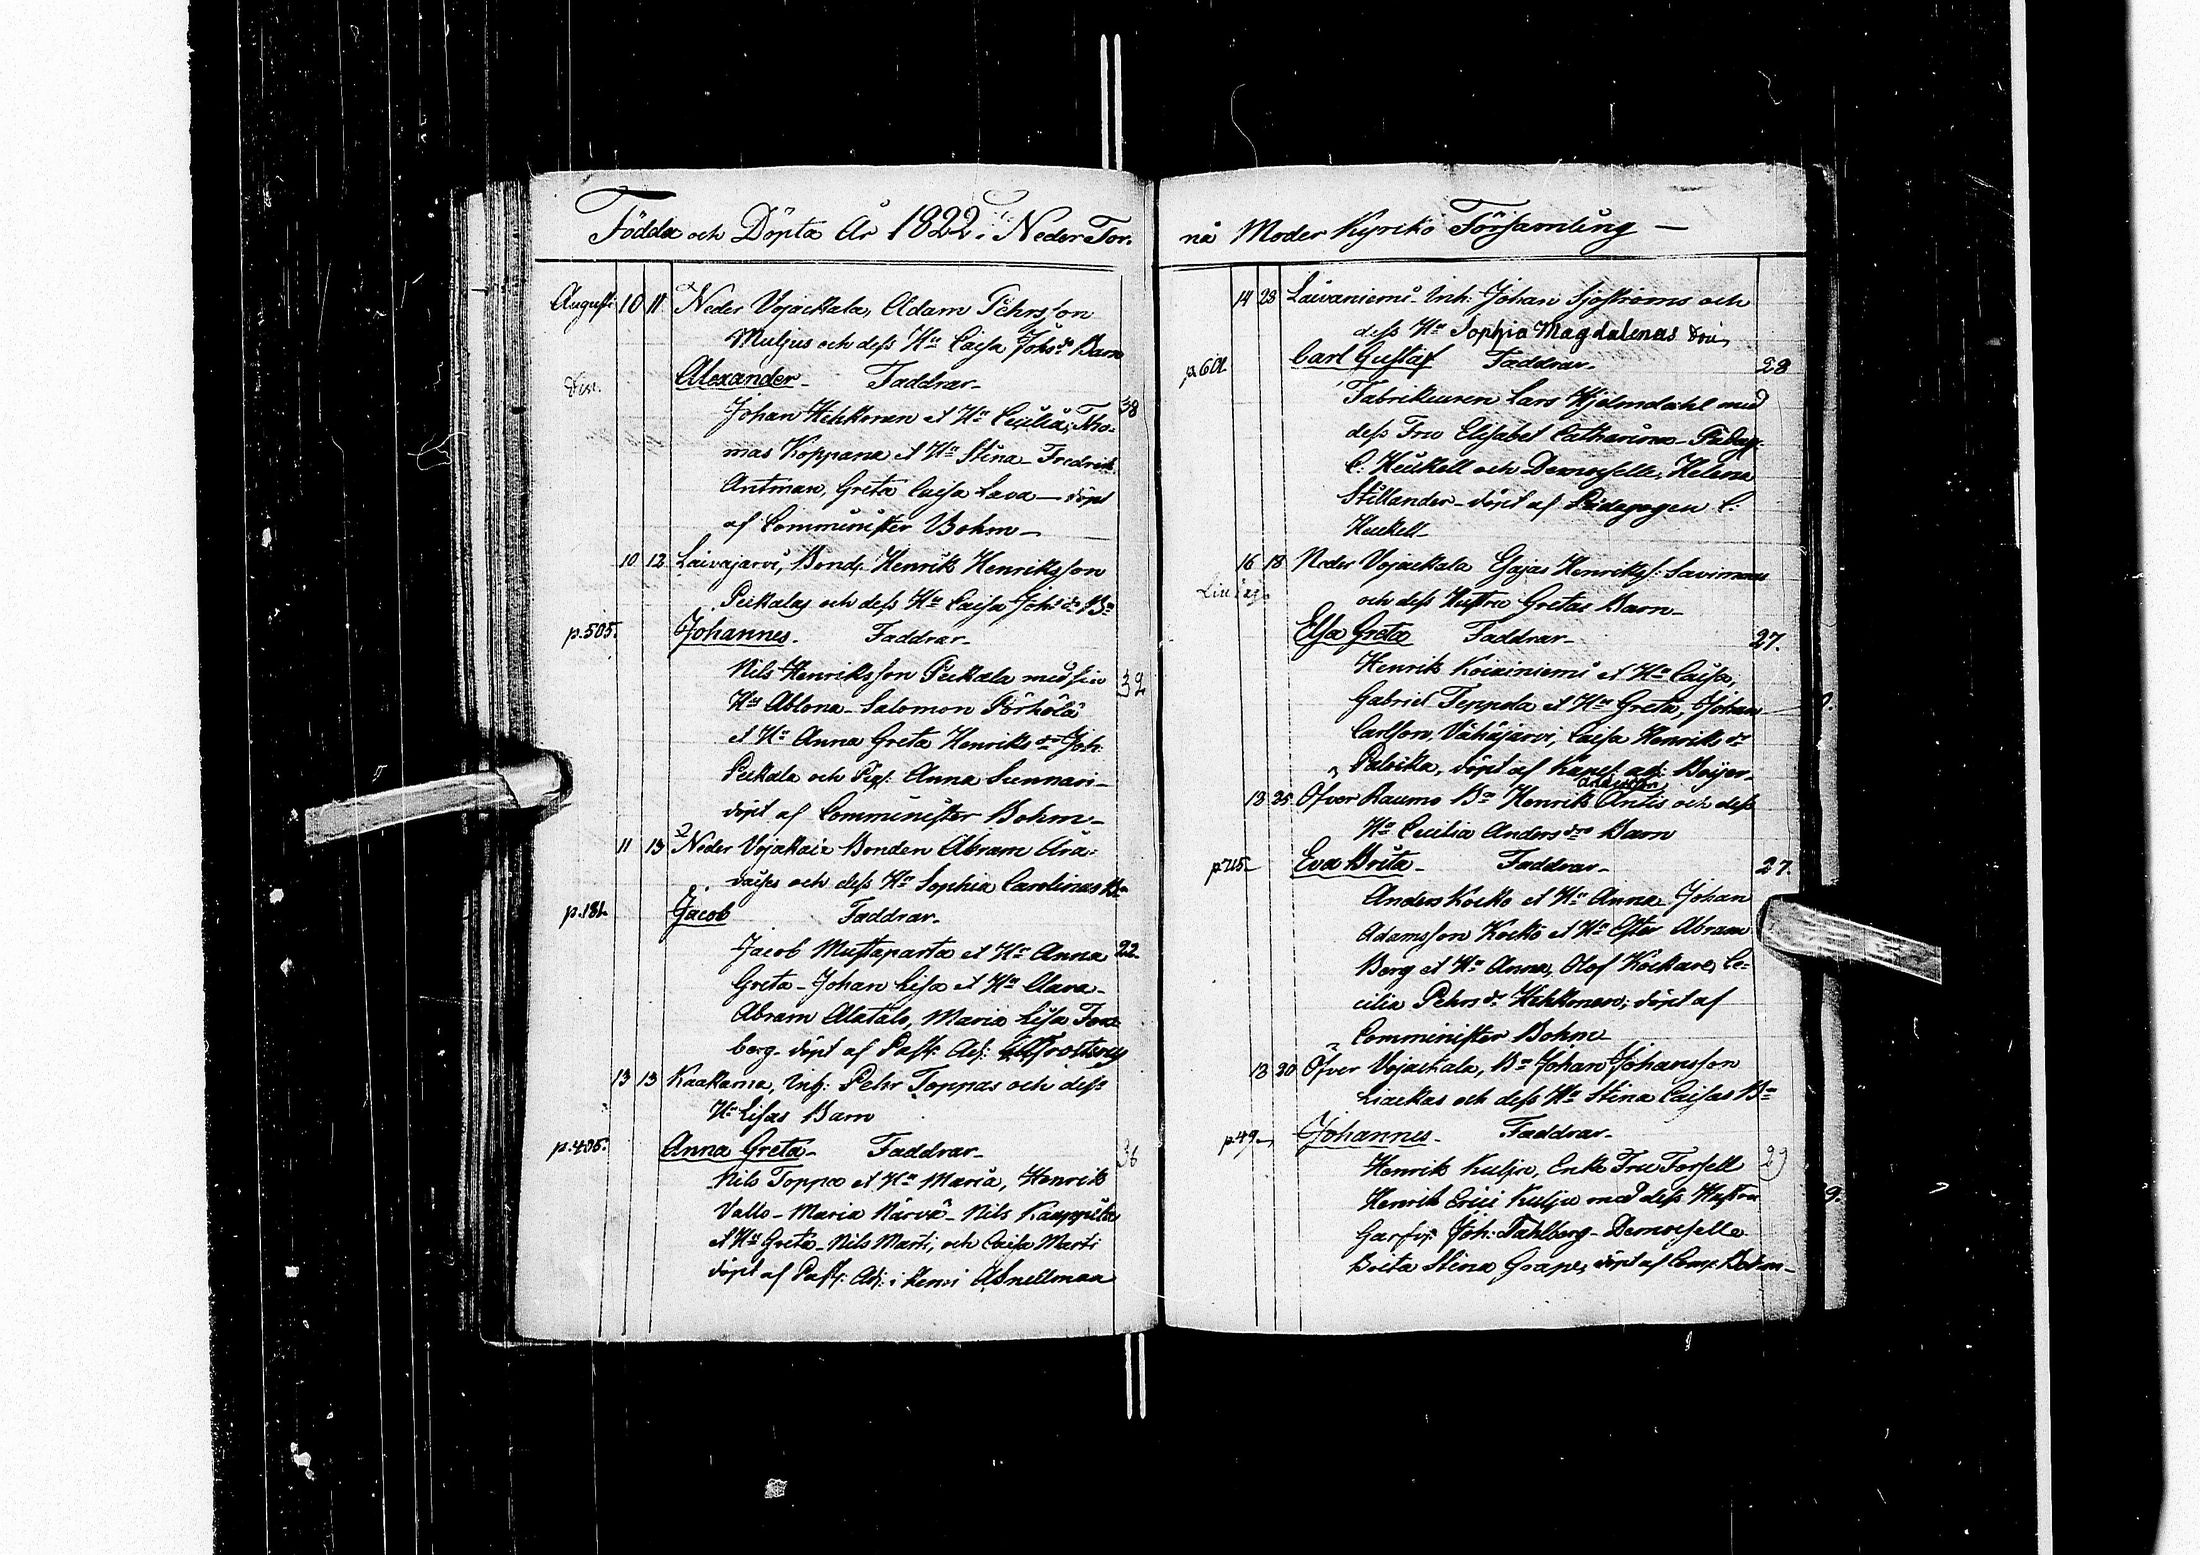 Födde och Döpta År 1822 i Neder Tor-
Augusti 10 11 Neder Vojackala, Adam Pehrsson
Muljus och dess Hu Caisa Johsdr Barn
Alexander - Faddrar -
38
Johan Hehkonen et Hu Cecilia, Tho-
mas Koppana et Hu Stina - Fredrik
Antman, Greta Caisa Lava - döpt
af Comminister Bohm -
10 12 Laivajärvi, Bond. Henrik Henriksson
Peikalas och dess Hu Caisa Johsdr Bn
p.505. Johannes - Faddrar -
Nils Henriksson Peikala med sin 32
Hu Ablona - Salomon Pörhölä
et Hu Anna Greta Henriksdr Joh.
Peikala och Pig. Anna Sunnari -
döpt af Comminister Bohm -
11 13 Neder Vojakala Bonden Abram Ara-
vaises och dess Hu Sophia Carolinas Bn
p.181. Jacob Faddrar -
Jacob Mustaparta et Hu Anna 22
Greta - Johan Lisa et Hu Clara -
Abram Alatalo, Maria Lisa Fors-
berg - döpt af Past. Adj.
13 13 Kaakama, Inh. Pehr Toppas och dess
Hu Lisas Barn
p.405. Anna Greta - Faddrar - 36
Nils Toppo et Hu Maria, Henrik
Vallo - Maria Närvä - Nils Kauppila
et Hu Greta - Nils Marti, och Caisa Marti
döpt af Past. Adj. i Kemi A Snellman
nå Moder Kyrko Församling -
14 28 Laivaniemi Inh. Johan Sjöströms och
dess Hu Sophia Magdalenas
p.60. Carl Gustaf Faddrar - 28
Fabrikeuren Lars Hjelmdahl med
dess Fru Elisabet Catharina - Pädag.
C. Heickell och Demoiselle Helena
Stillander - döpt af Pädagogen C.
Heickell -
16 18 Neder Vojackala Gajas Henrikss. Savimaas
och dess Hustru Gretas Barn -
Elsa Greta Faddrar - 27.
Henrik Koivuniemi et Hu Caisa,
Gabriel Teppola et Hu Greta, Johan
Carlson, Vähäjärvi, Caisa Henriksdr
Palvika, döpt af Kapel. adj. Beijer -
Andersson
13 25 Öfver Raumo Bn Henrik Antis och dess
Hu Cecilia Andersdrs Barn
p 715 Eva Brita - Faddrar - 27.
Anders Kocko et Hu Anna - Johan
Adamsson Kocko et Hu Ester Abram
Berg et Hu Anna, Olof Kockare, Ce-
cilia Pehrsdr Hehkonen; döpt af
Comminister Bohm
13 20 Öfver Vojackala, Bn Johan Johansson
Liackas och dess Hu Stina Caisas Bn
p.49. Johannes - Faddrar -
Henrik Kulju, Enke Fru Forsell 29
Henrik Erici Kulju med dess Hustru
Garfv. Joh. Fahlberg - Demoiselle
Brita Stina Grape, döpt af Com. Bohm -